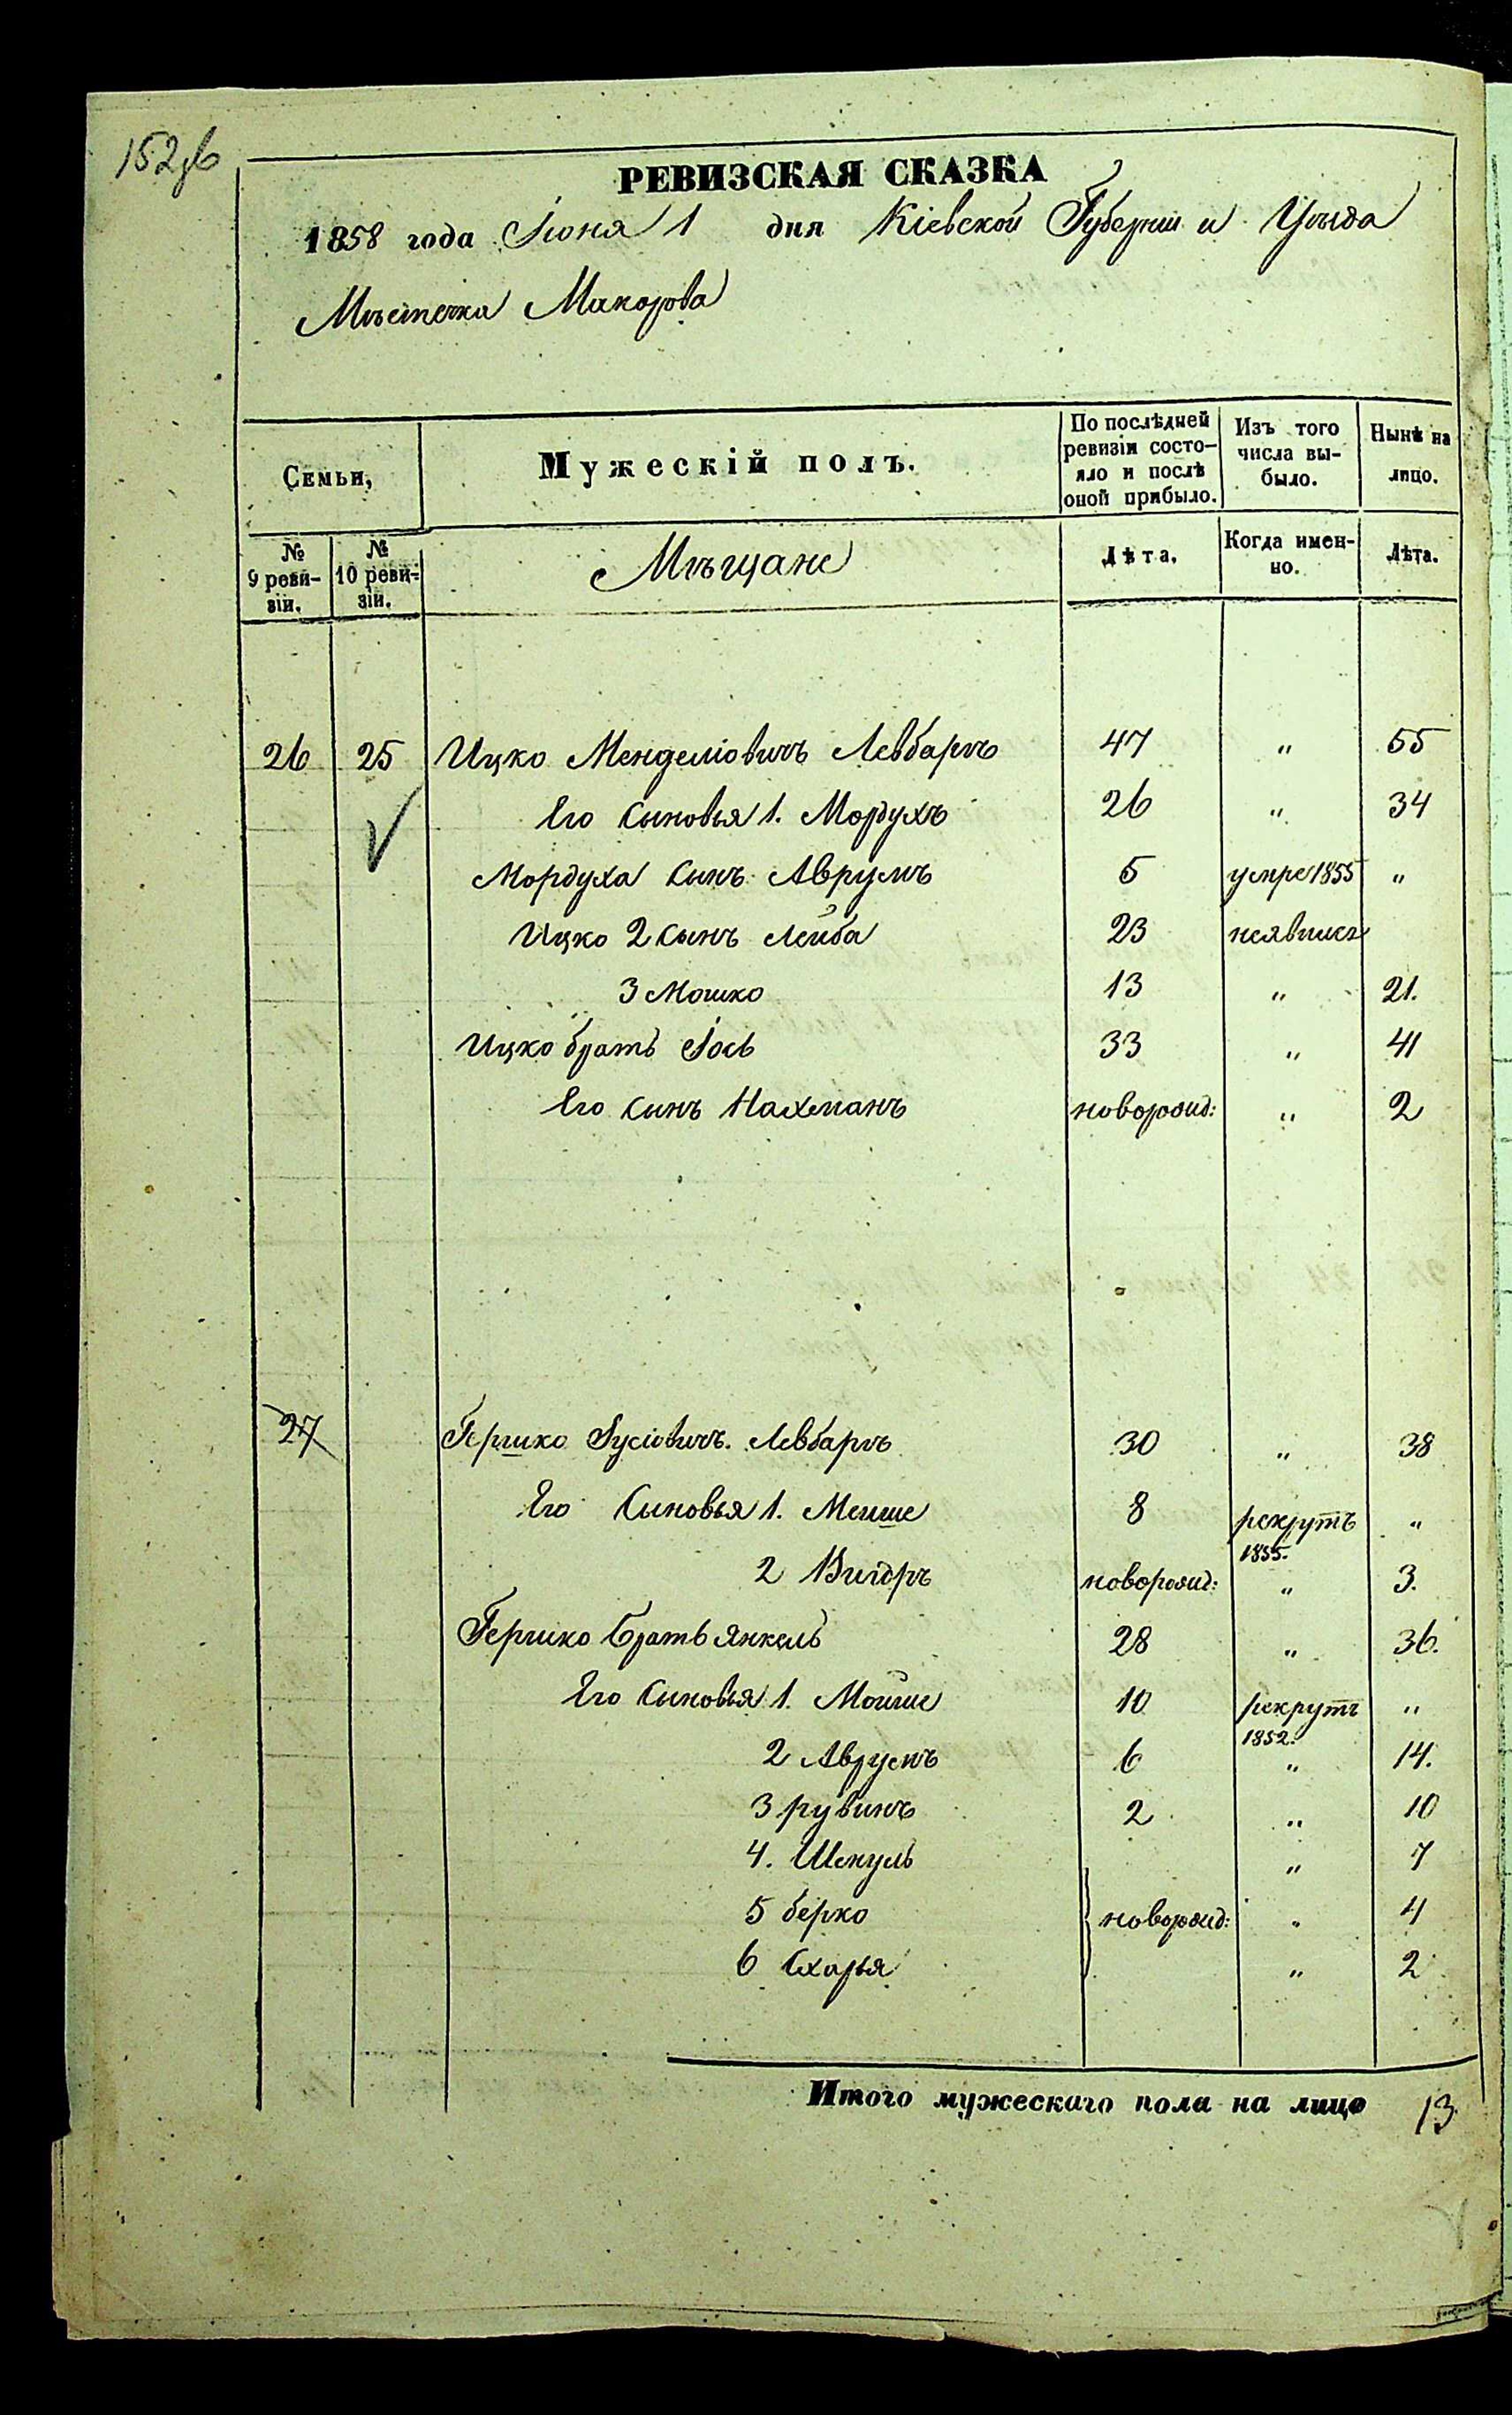 152 об
РЕВИЗСКАЯ СКАЗКА
1858 года Іюня 1 дня Кіевской Губерніи и Уѣзда
Мѣстечка Макорова
Семьи, Мужескій полъ. По послѣдней ревизіи состо-яло и послѣ оной прибыло. Изъ того числа вы-было. Нынѣ на лицо.
№ 9 реви-зіи. № 10 реви-зіи. Мѣщане Лѣта. Когда имен-но. Лѣта.
26 25 Ицко Менделіовичъ Левбаргъ 47 " 55
Его сыновья 1. Мордухъ 26 " 34
Мордуха сынъ Аврумъ 5 умре 1855 "
Ицко 2 сынъ Лейба 23 неявился
3 Мошко 13 " 21.
Ицко братъ Іось 33 " 41
Его сынъ Нахманъ новорожд: " 2
27 Гершко Іусіовичъ. Левбаргъ 30 " 38
Его Сыновья 1. Мейше 8 рекрутъ 1855. "
2 новорожд: " 3.
Гершко братъ Янкель 28 " 36.
Его Сыновья 1. Мойше 10 рекрутъ 1852. "
2 Аврумъ 6 " 14.
3 рувинъ 2 " 10
4. " 7
5 берко новорожд: " 4
6 Схарья " 2
Итого мужескаго пола на лицо 13